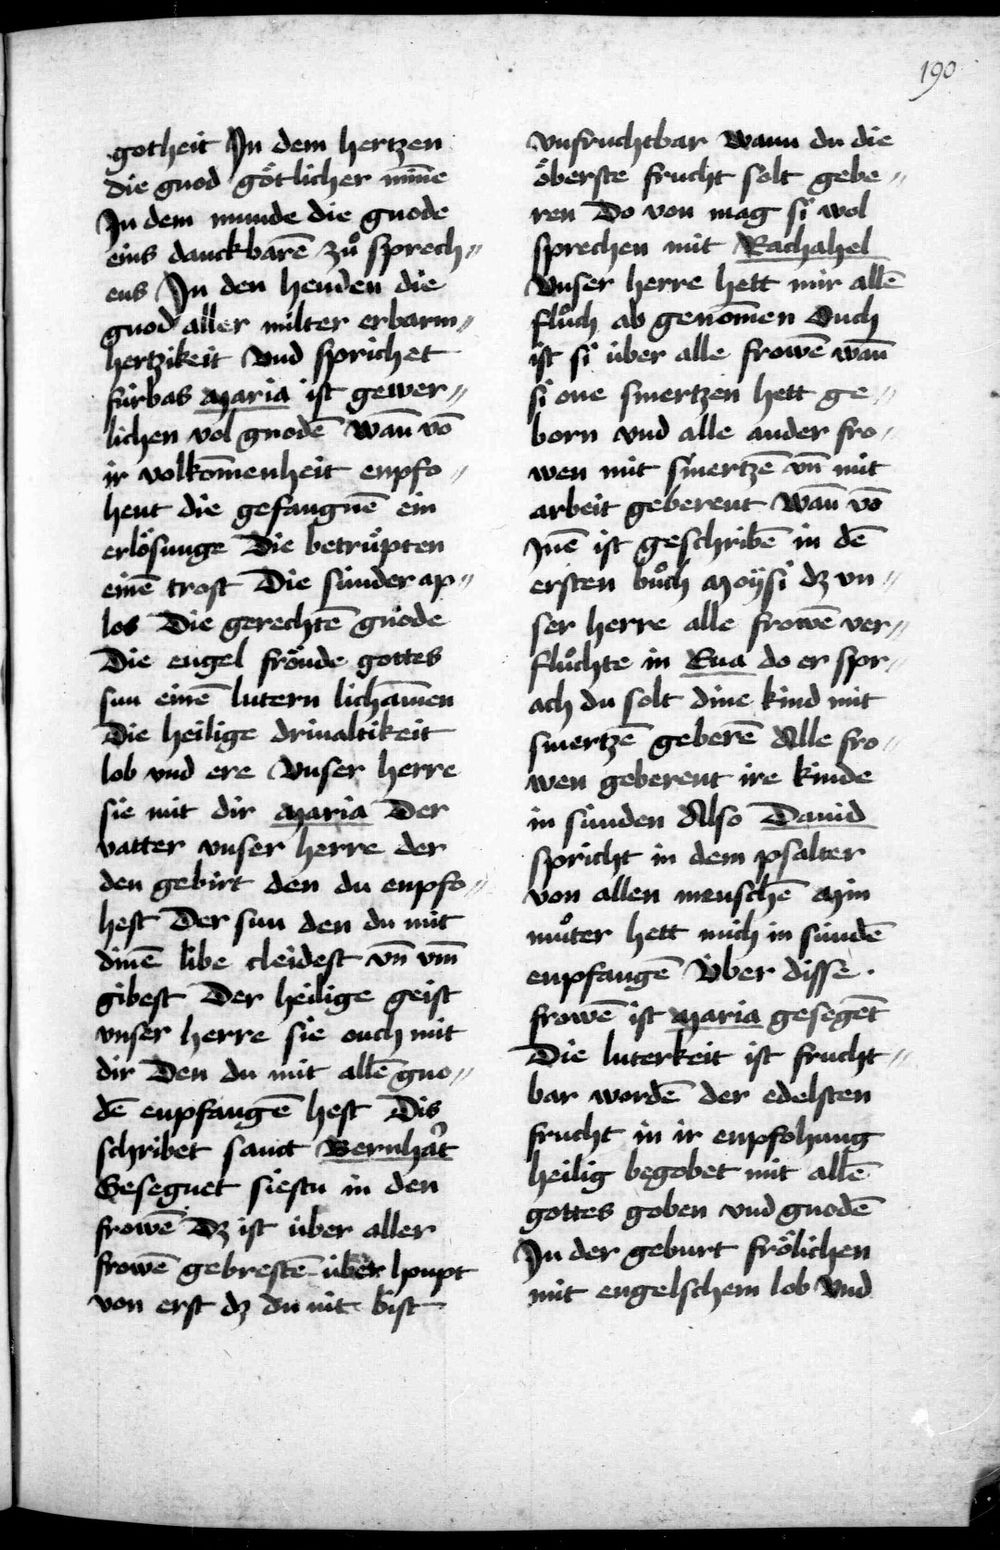 190
gotheit In dem hertzen
die gnod goͤtlicher miñe
In dem munde die gnode
eins danckbarē zuͦ sprech〃
ens In den henden die
gnod aller milter erbarm〃
hertzikeit Vnd sprichet
fúrbas Maria ist gewer〃
lichen vol gnodē Wañ vō
ir volkōmenheit enpfo〃
hent die gefangnē ein
erlösunge Die betruͤpten
einē trost Die súnder ap〃
los Die gerechtē gnode
Die engel froͤude gottes
sun einē lutern lichāmen
Die heilige driualtikeit
lob vnd ere Vnser herre
sie mit dir Maria Der
vatter vnser herre der
den gebirt den du enpfo〃
hest Der sun den du mit
dinē libe cleidest vñ vm̄
gibest Der heilige geist
vnser herre sie ouch mit
dir Den du mit allē gno〃
dē enpfangē hest Dis
schribet sanct Bernhart
Gesegnet siestu in den
frowē Dz ist úber aller
frowē gebrestē úber houpt
von erst dz du nit bist
vnfruchtbar Wann du die
oͤberste frucht solt gebe〃
ren Do von mag si wol
sprechen mit Rachahel
Vnser herre hett mir allē
fluͦch ab genōmen Ouch
ist si úber alle frowē wañ
si one smertzen hett ge〃
born vnd alle ander fro〃
wen mit smertzē vñ mit
arbeit geberent Wañ vō
Inē ist geschribē in dē
ersten buͦch Moÿsi dz vn〃
ser herre alle frowē ver〃
fluͦchte in Eua do er spr〃
ach du solt dine kind mit
smertzē geberē Alle fro〃
wen geberent ire kinde
in súnden Also Dauid
spricht in dem psalter
von allen menschē Min
muͦter hett mich in súndē
enpfangē Úber disse
frowē ist Maria gesegēt
Die luterkeit ist frucht〃
bar wordē der edelsten
frucht in ir enpfohung
heilig begobet mit allē
gottes goben vnd gnodē
In der geburt froͤlichen
mit engelschem lob Vnd